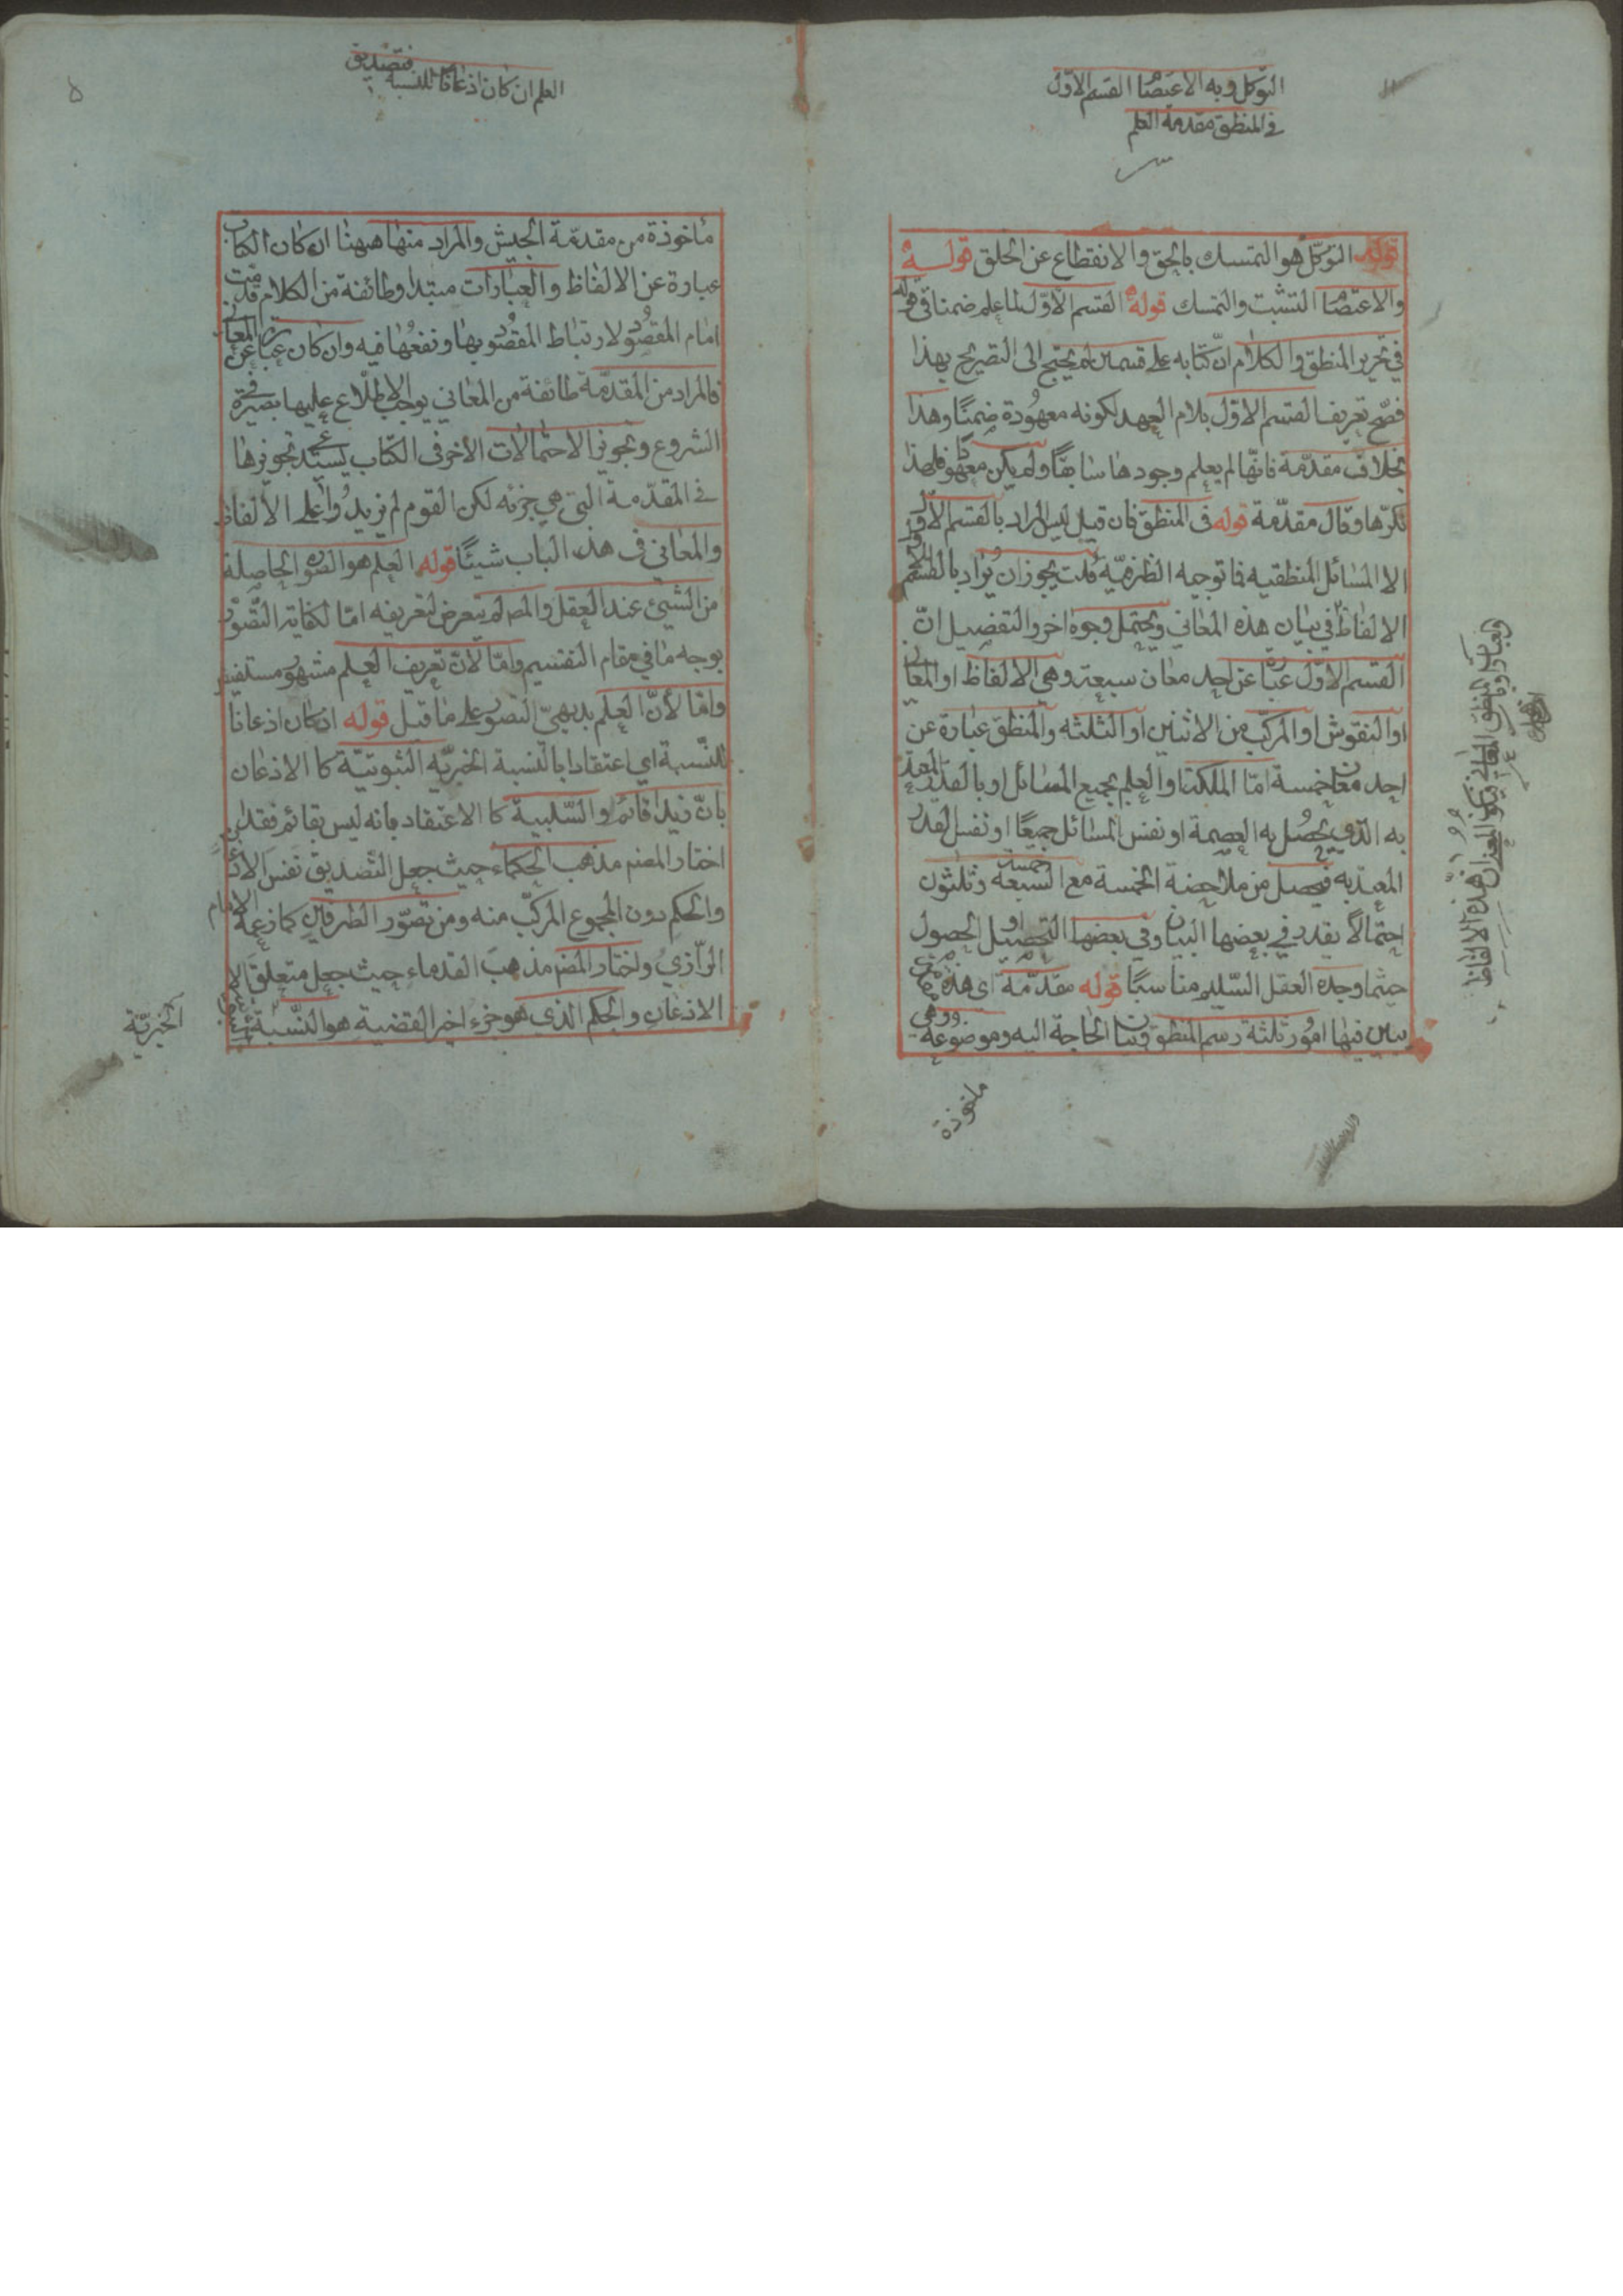 التوكل وبه الاعتصا القسم الاول
في المنطق مقدمة العلم
قوله التوكل هو التمسك بالحق والانقطاع عن الخلق قوله
والاعتصا التشبث والتمسك قوله القسم الاول لما علم ضمنا في قوله
في تحرير المنطق والكلام ان كتابه على قسمين لم يحتج الى التصريح بهذا
فصح تعريف القسم الاول بلام العهد لكونه معهودة ضمنا وهذا
بخلاف مقدمة فانها لم يعلم وجودها سابقا ولم يكن معهو فلهذا
نكرها وقال مقدمة قوله في المنطق فان قيل ليس المراد بالقسم الاول
الا المسائل المنطقيه فما توجيه الظرفيه قلت يجوز ان يراد بالقسم
الالفاظ في بيان هذه المعاني ويحتمل وجوه اخر والتفصيل ان
القسم الاول عبا عن احد معان سبعة وهي الالفاظ او المعا
او النقوش او المركب من الاثنين او الثلثه والمنطق عبارة عن
احد معا خمسة اما الملكة او العلم بجميع المسائل او بالقدر المعتد
به الذي يحصل به العصمة او نفس المسائل جميعا او نفس القدر
المعتد به فيحصل من ملاحضة الخمسة مع السبعة خمسة وثلثون
احتمالا يقدر في بعضها البيان وفي بعضها التحصيل او الحصول
حيثما وجده العقل السليم مناسبا قوله مقدمة اى هذه
يبين فيها امور ثلثة رسم المنطق وبيا الحاجة اليه وموضوعه وهى
ماخوذة
هذه الالفاظ
العلم ان كان اذعانا للنسبة فتصديق
٥
مأخوذة من مقدمة الجيش والمراد منها ههنا ان كان الكتاب
عبارة عن الالفاظ والعبارات مبتدا وطائفة من الكلام قدمت
امام المقصود لارتباط المقصو بها ونفعها فيه وان كان عبا عن المعا
فالمراد من المقدمة طائفة من المعاني يوجب الاطلاع عليها بصيرة في
الشروع وتجويز الاحتمالات الاخر في الكتاب يستدعي تجويزها
في المقدمة التي هي جزئه لكن القوم لم يزيدوا على الالفاظ
والمعاني في هذا الباب شيئا قوله العلم هو الصو الحاصلة
من الشيئ عند العقل والمصـ لم يتعرض لتعريفه اما لكفاية التصور
بوجه ما في مقام التقسيم واما لان تعريف العلم مشهور مستفيض
واما لأن العلم بديهي التصور على ما قيل قوله ان كان اذعانا
للنسبة اي اعتقادا بالنسبة الخبريه الثبوتية كا الاذعان
بان زيدا قائم او السلبية كا الاعتقاد بانه ليس بقائم فقد
اختار المصنم مذهب الحكماء حيث جعل التصديق نفس الاذعا
والحكم دون المجموع المركب منه ومن تصور الطرفين كما زعمه الامام
الرازي واختار المصم مذهب القدماء حيث جعل متعلق
الاذعان والحكم الذى هو جزء اخير القضية هو النسبة
الخبرية